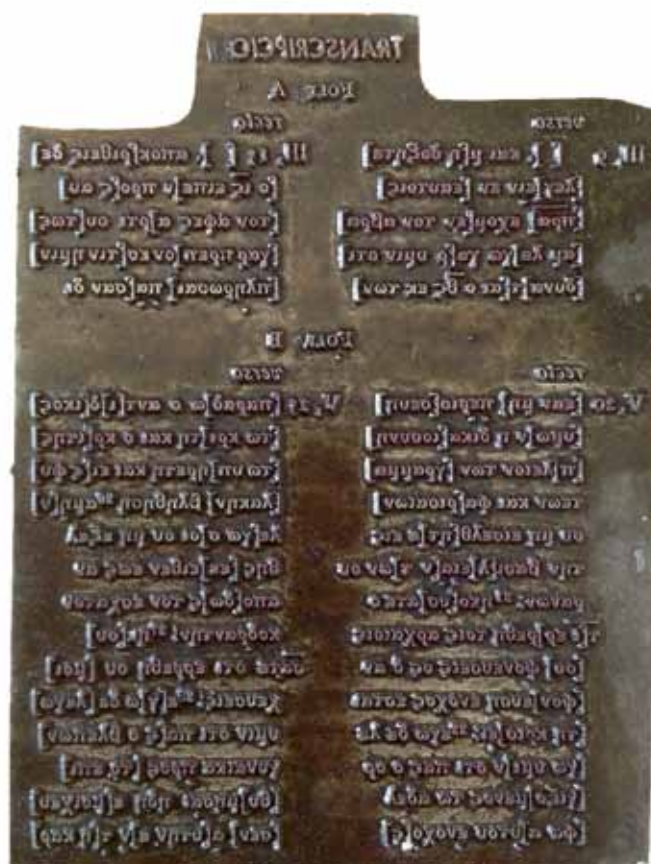 TRANSCRIPCIO
FOLI A
verso
III, 9 [ ] [ και μη] δοξητε
λεγ]ειν εν εαυτοις[
πρα] εχομεν τον αβρα
αμ λε]γω γα[ρ υμιν οτι
δυνατ]αι ο θς εκ των[
recto
III, 15 [ ] [ αποκ]ριθεις δε
[ο ις ειπε]ν προς αυ
τον αφες α]ρτι ουτως
πληρωσαι] πασαν δε
FOLI B
recto
V, 20 [εαν μη] περισ]σευση
υμω]ν η δικα]ιοσυνη
π]λειον των [γραμμα
τεων και φα]ρισαιων
ου μη εισελθ]ητ[ε εις
την βασιλ]εια[ν τ]ων ου
ρανων· ²¹ηκο]υσατε ο
τ]ι ερρεθη τοις αρχαιοις
[ου φονευσεις ος δ αν
φον]ευση ενοχος εσται
τη κρισ]ει· ²²εγω δε λε
γω υμι]ν οτι πας ο ορ
γιζο]μενος τω αδελ
φω α]υτου ενοχο[ς
verso
V, 25 [παραδ]ω ο αντι]δικος[
τω κριτη και ο κρ]ιτης
τω υπ]ηρετη και εις φυ
λακην] βληθηση ²⁶αμη[ν
λεγω σ]οι ου μη εξελ
θης [εκ]ειθεν εως αν
αποδω]ς τον εσχατον
κοδραντην· ²⁷ηκου
σατε οτι ερρεθη ου [μοι
χευσεις· ²⁸ε]γω δε λεγω
υμιν οτι πας ο βλεπων
γυναικα προς [το επι
θυμησαι ηδη ε]μοιχευ
σεν] α]υτην ε[ν τ]η καρ